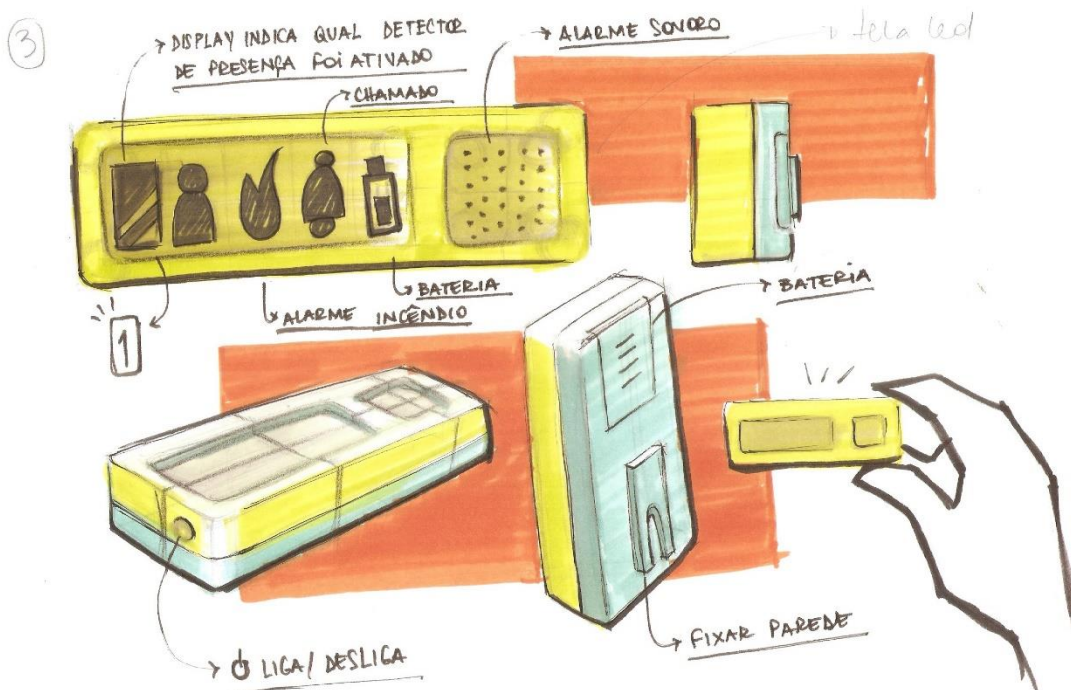 3
DISPLAY INDICA QUAL DETECTOR
DE PRESENÇA FOI ATIVADO
CHAMADO
ALARME SONORO
tela led
BATERIA
ALARME INCÊNDIO
1
BATERIA
FIXAR PAREDE
LIGA/DESLIGA